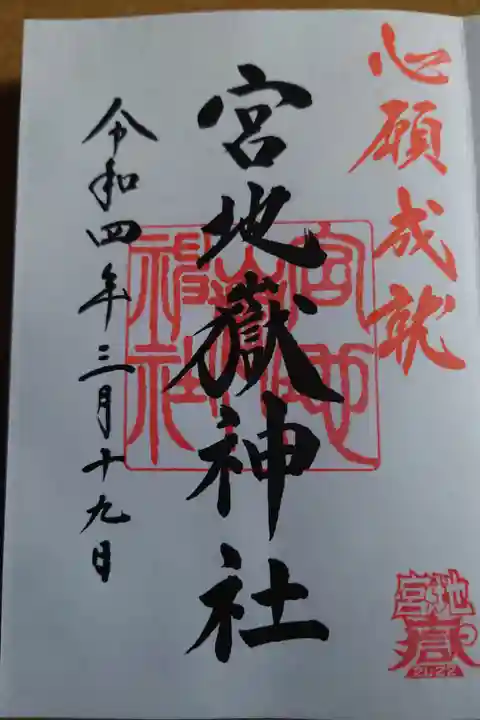 心願成就
宮地嶽神社
宮地嶽神社
令和四年三月十九日
宮地嶽
2022